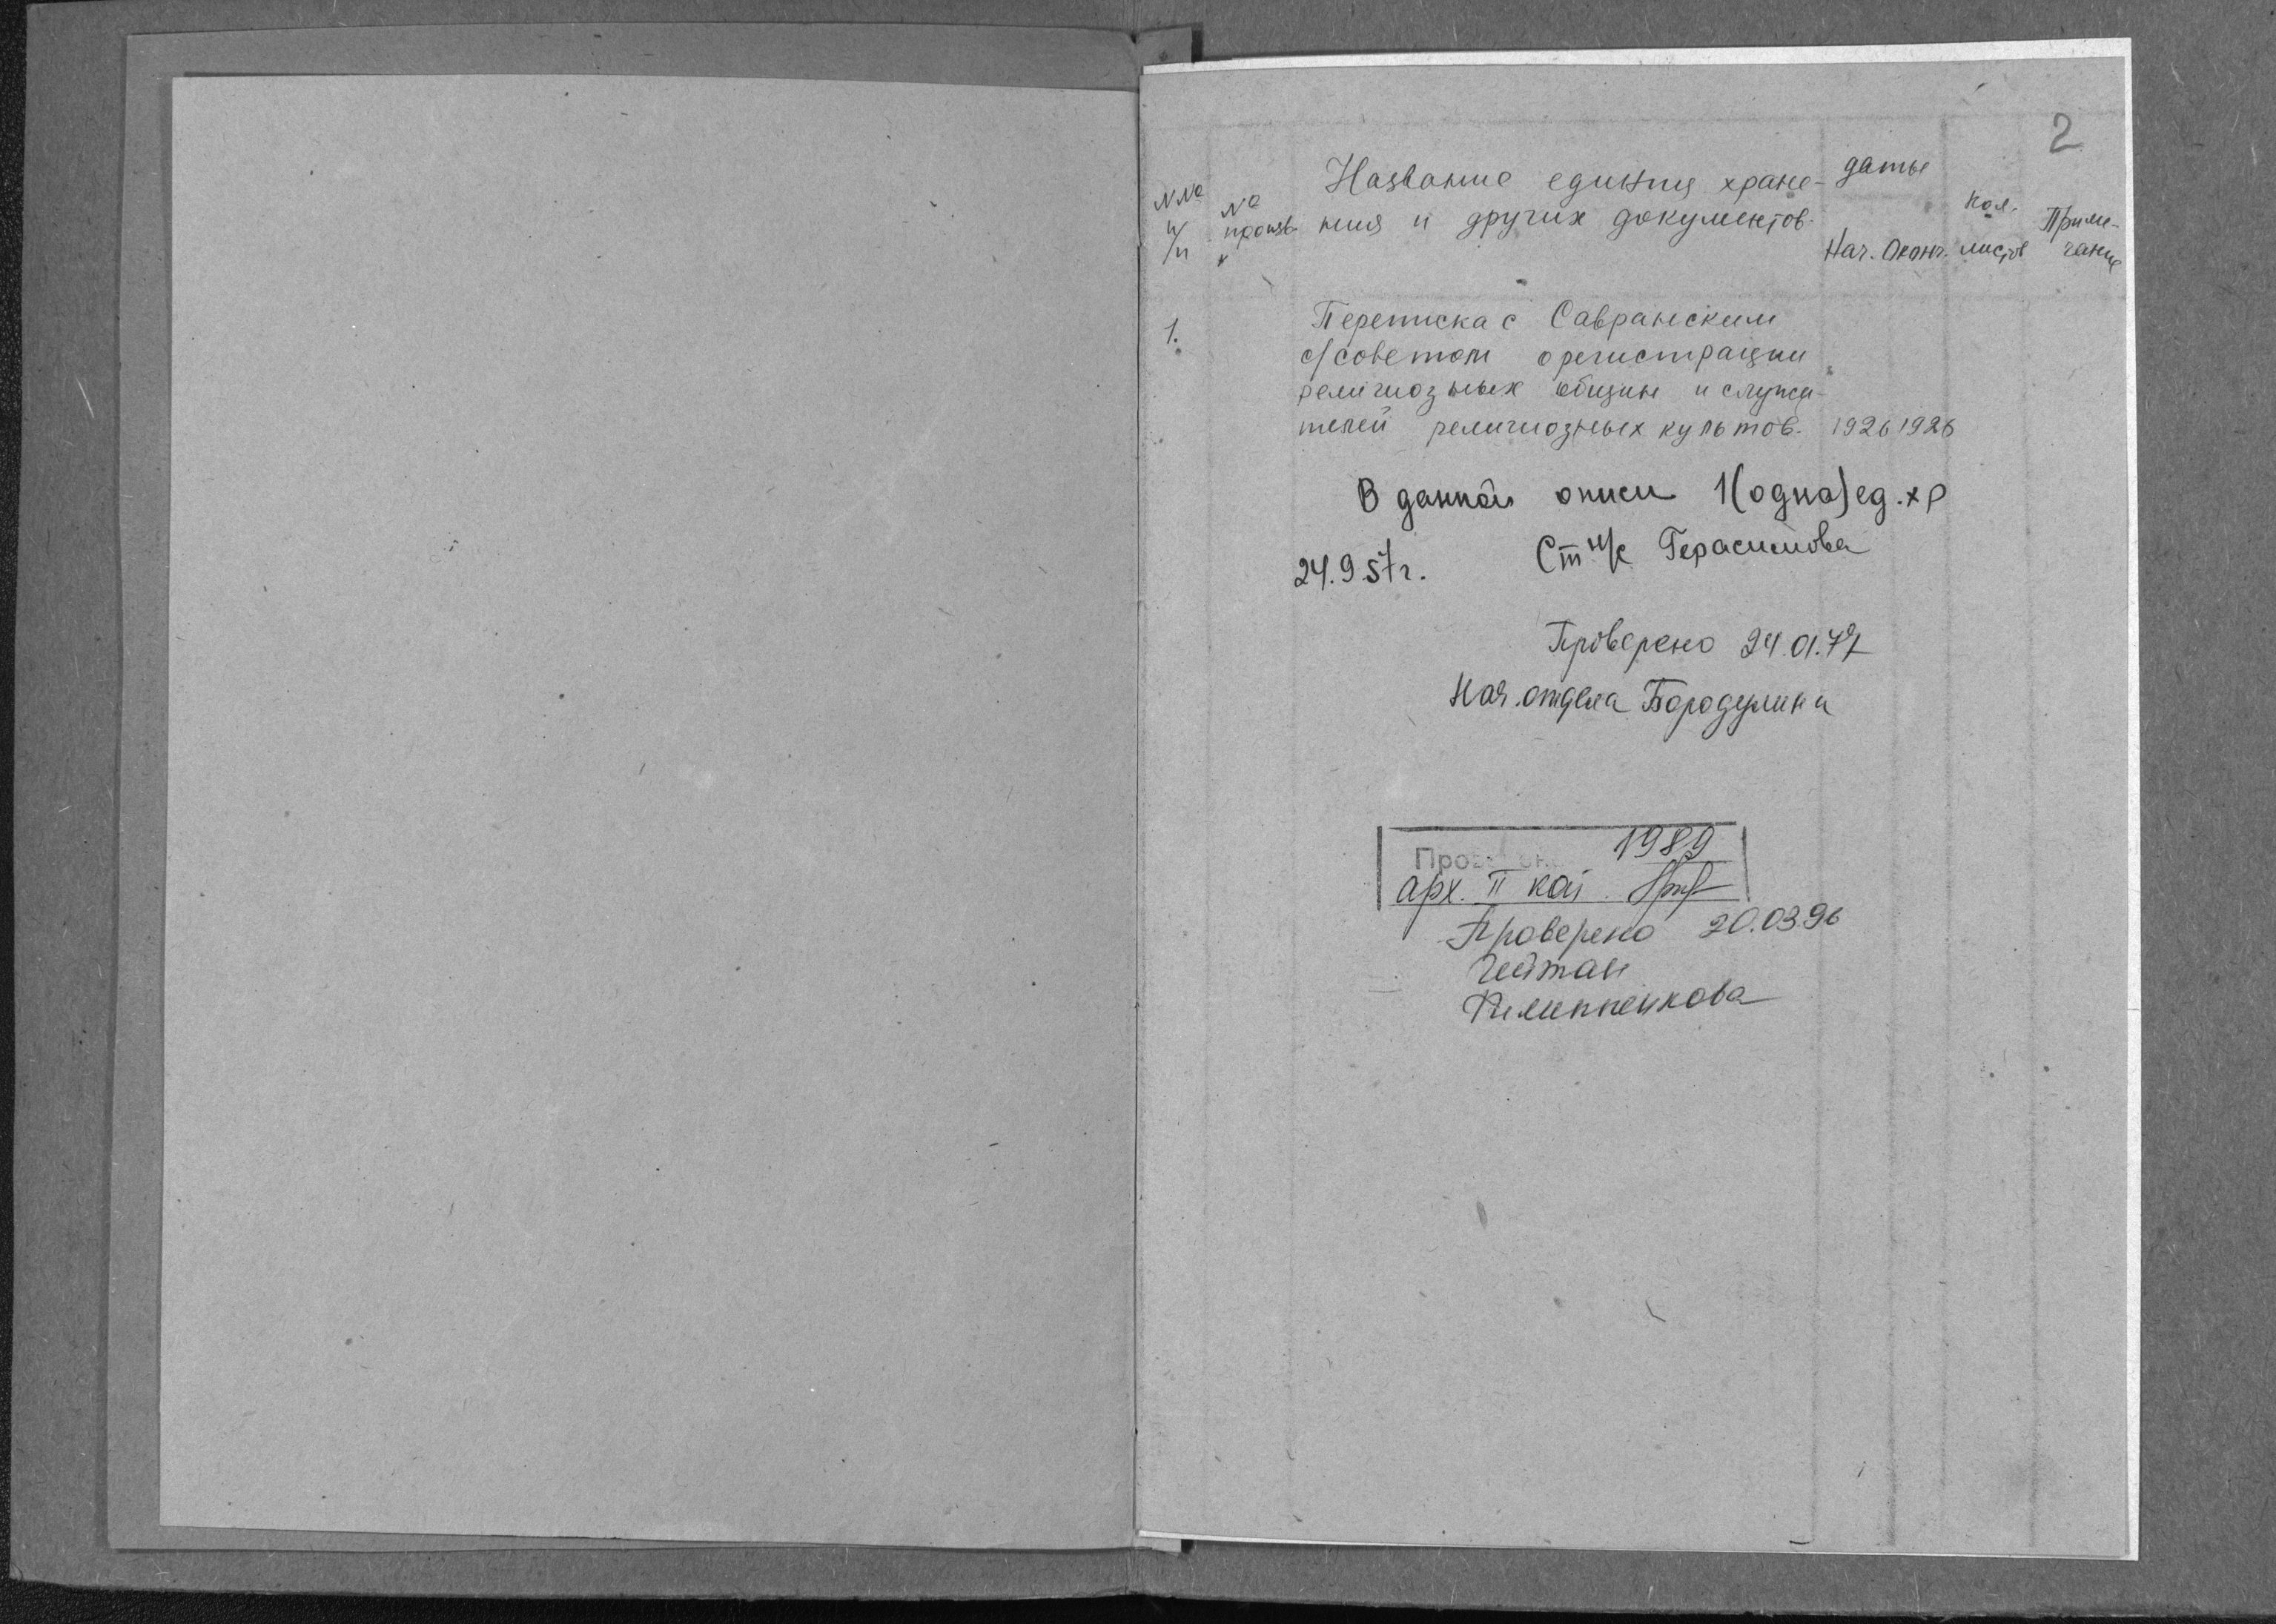 2
NNo п/п
No произв
Название единиц хране-
ния и других документов
даты
Нач. Оконч.
Кол. листов
Приме-
чание
1.
Переписка с Савранским
с/советом о регистрации
религиозных общин и служи-
телей религиозных культов. 1926 1926
В данной описи 1(одна) ед. хр
24.9.57г. Ст н/с Герасимова
Проверено 24.01.77
Нач. отдела Бородулина
Проверено 1989
арх. II кат.
Проверено 20.03.96
Филиппенкова